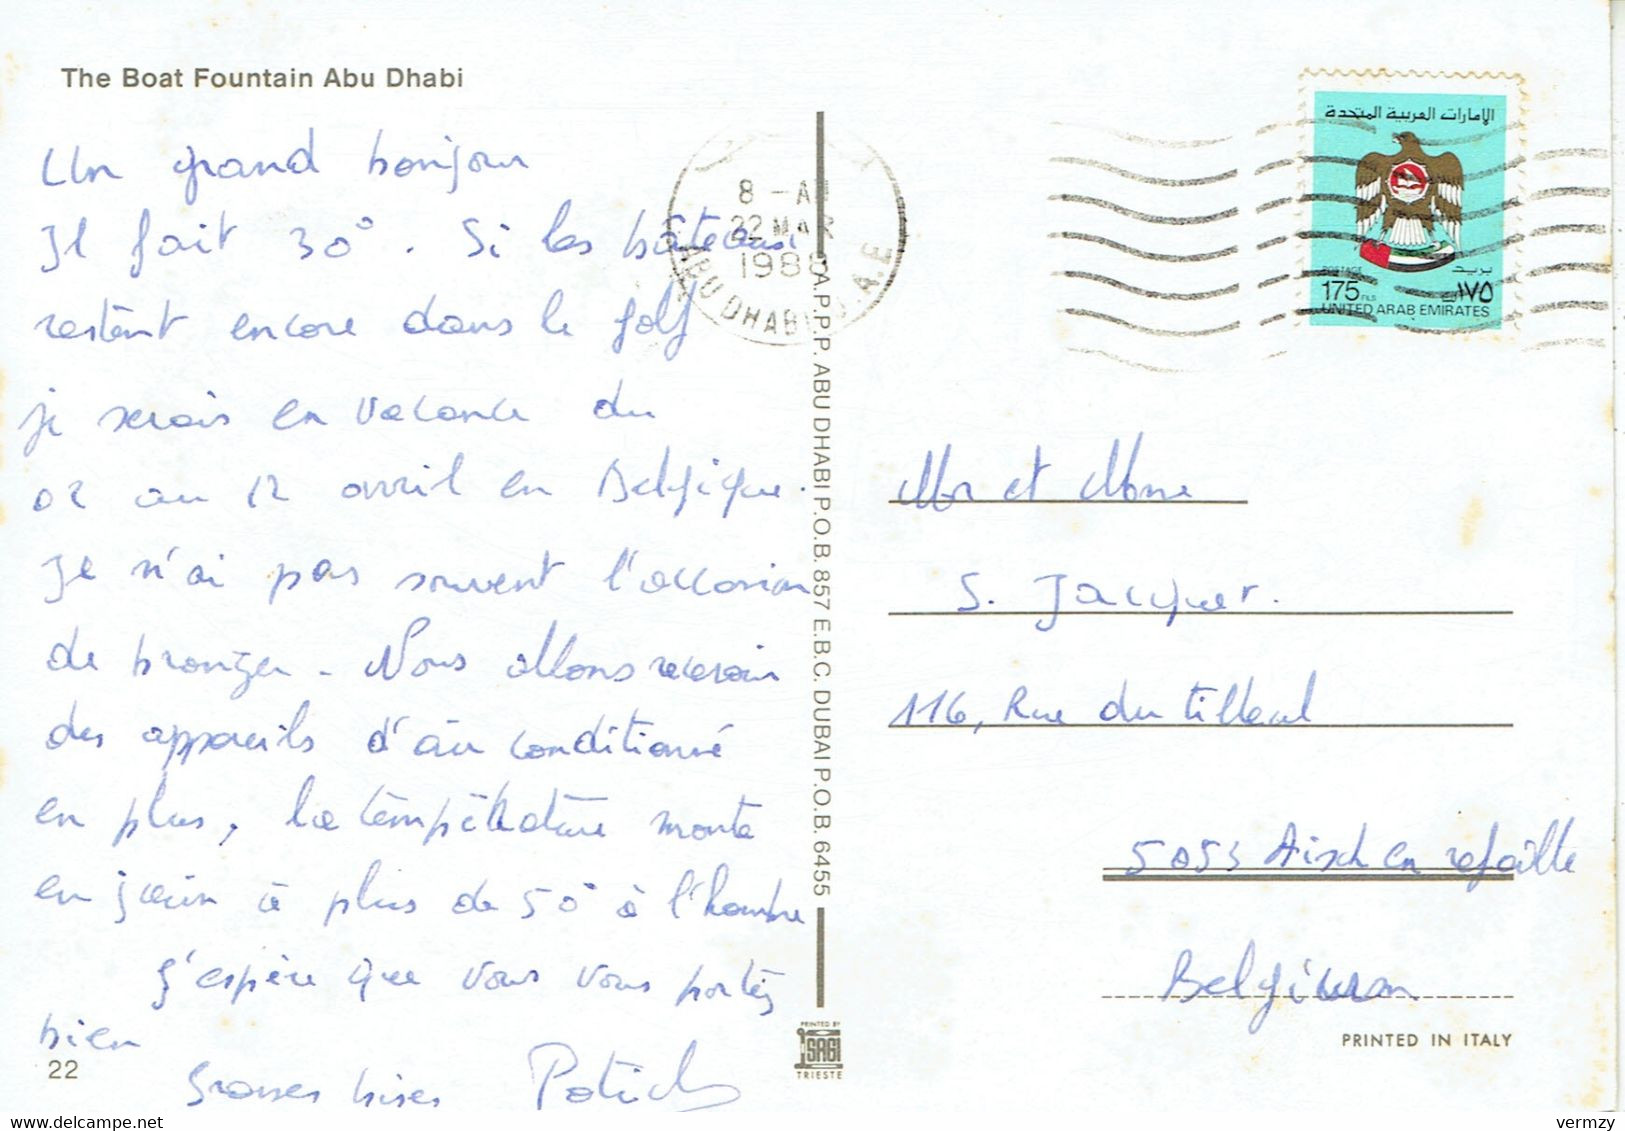 The Boat Fountain Abu Dhabi
Un grand bonjour
Il fait 30°. Si les bâteaux
restent encore dans le golf
je serais en vacance du
02 au 12 avril en Belgique.
Je n'ai pas souvent l'occasion
de bronzer. Nous allons recevoir
des appareils d'air conditionné
en plus, la température monte
en juin à plus de 50° à l'hombre
J'espère que vous vous portez
bien
Grosses bises
22
8 - A
22 MAR
1988
ABU DHABI U.A.E
A.P.P.P. ABU DHABI P.O.B. 857 E.B.C. DUBAI P.O.B. 6455
PRINTED BY
SAGI
TRIESTE
الامارات العربية المتحدة
POSTAGE
بريد
175 FILS
١٧٥
UNITED ARAB EMIRATES
Mr et Mme
S. Jacquet.
116, Rue du tilleul
5053 Aisch en refaille
Belgium
PRINTED IN ITALY
vermzy